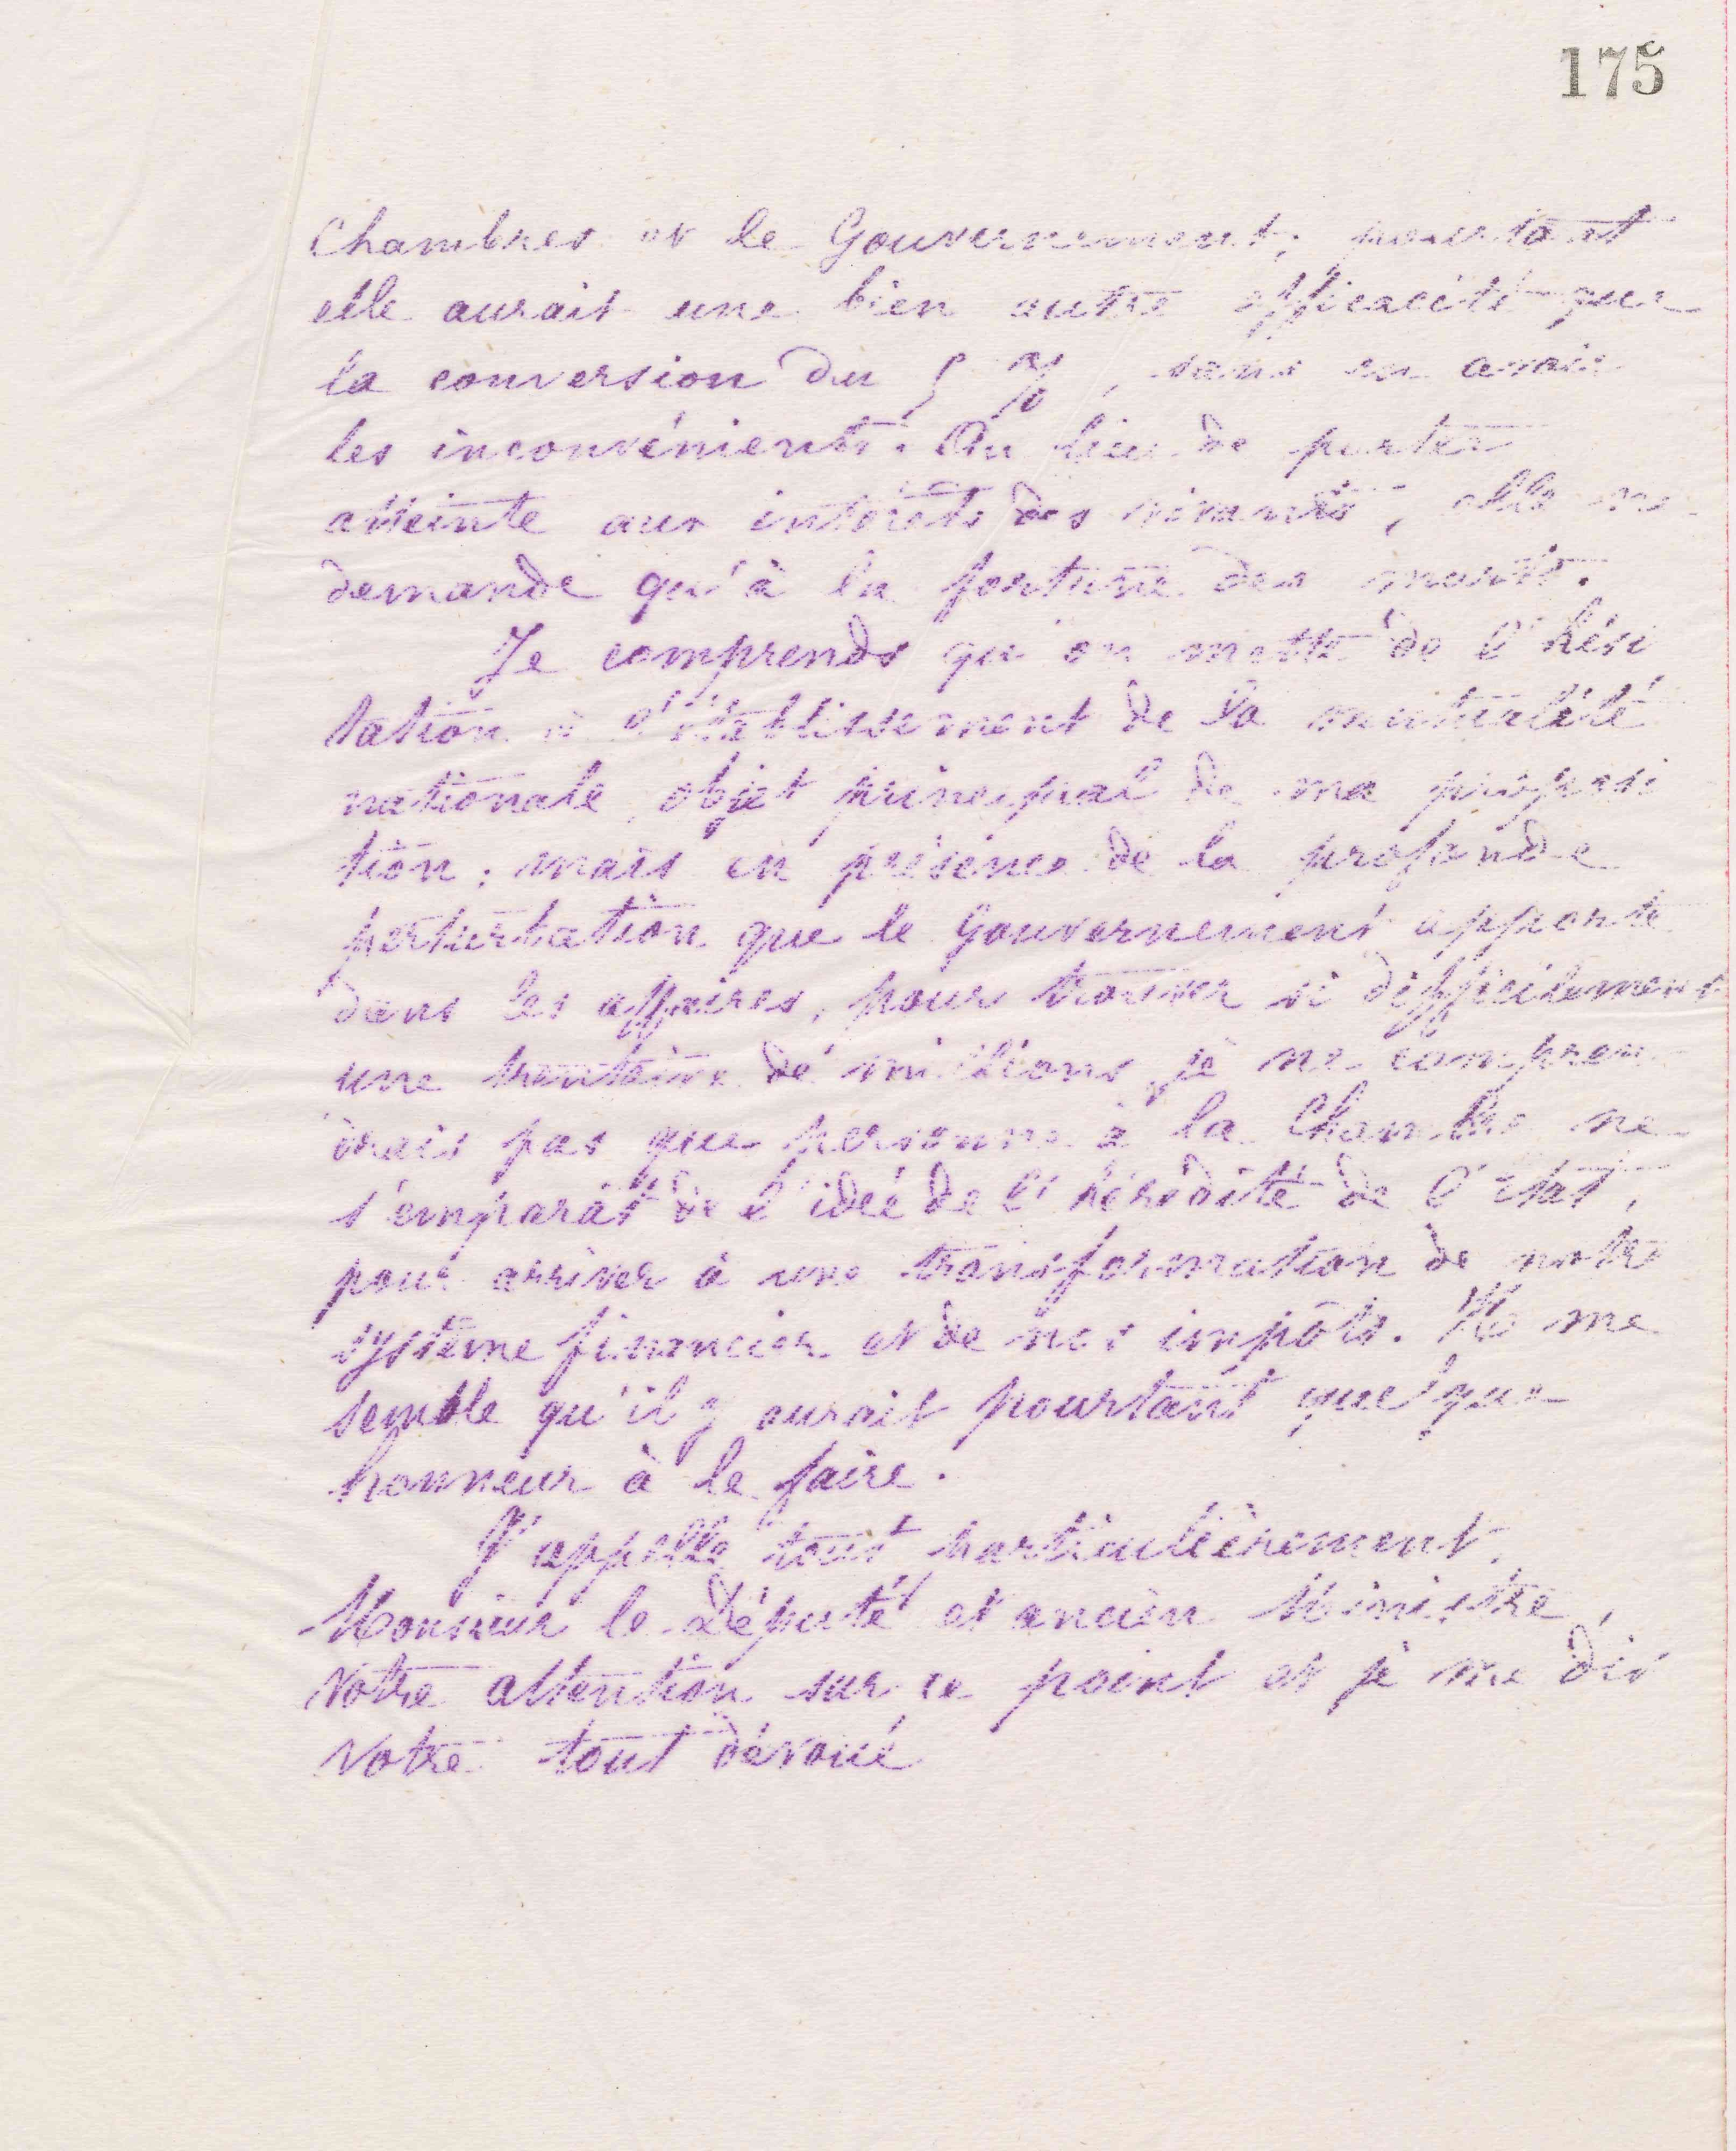 175
Chambres et le Gouvernement; pourtant
elle aurait une bien autre efficacité que
la conversion du 5 %, sans en avoir
les inconvénients. Au lieu de porter
atteinte aux intérêts des vivants, elle ne
demande qu'à la fortune des morts.
Je comprends qu'on mette de l'hési
tation à l'établissement de la mutualité
nationale, objet principal de ma proposi
tion; mais en présence de la profonde
perturbation que le Gouvernement apporte
dans les affaires, pour trouver si difficilement
une trentaine de millions, je ne compren-
drais pas que personne à la Chambre ne
s'emparât de l'idée de l'hérédité de l'Etat,
pour arriver à une transformation de notre
système financier et de nos impôts. Il me
semble qu'il y aurait pourtant quelque
honneur à le faire.
J'appelle tout particulièrement,
Monsieur le Député et ancien Ministre,
votre attention sur ce point et je me dis
votre tout dévoué